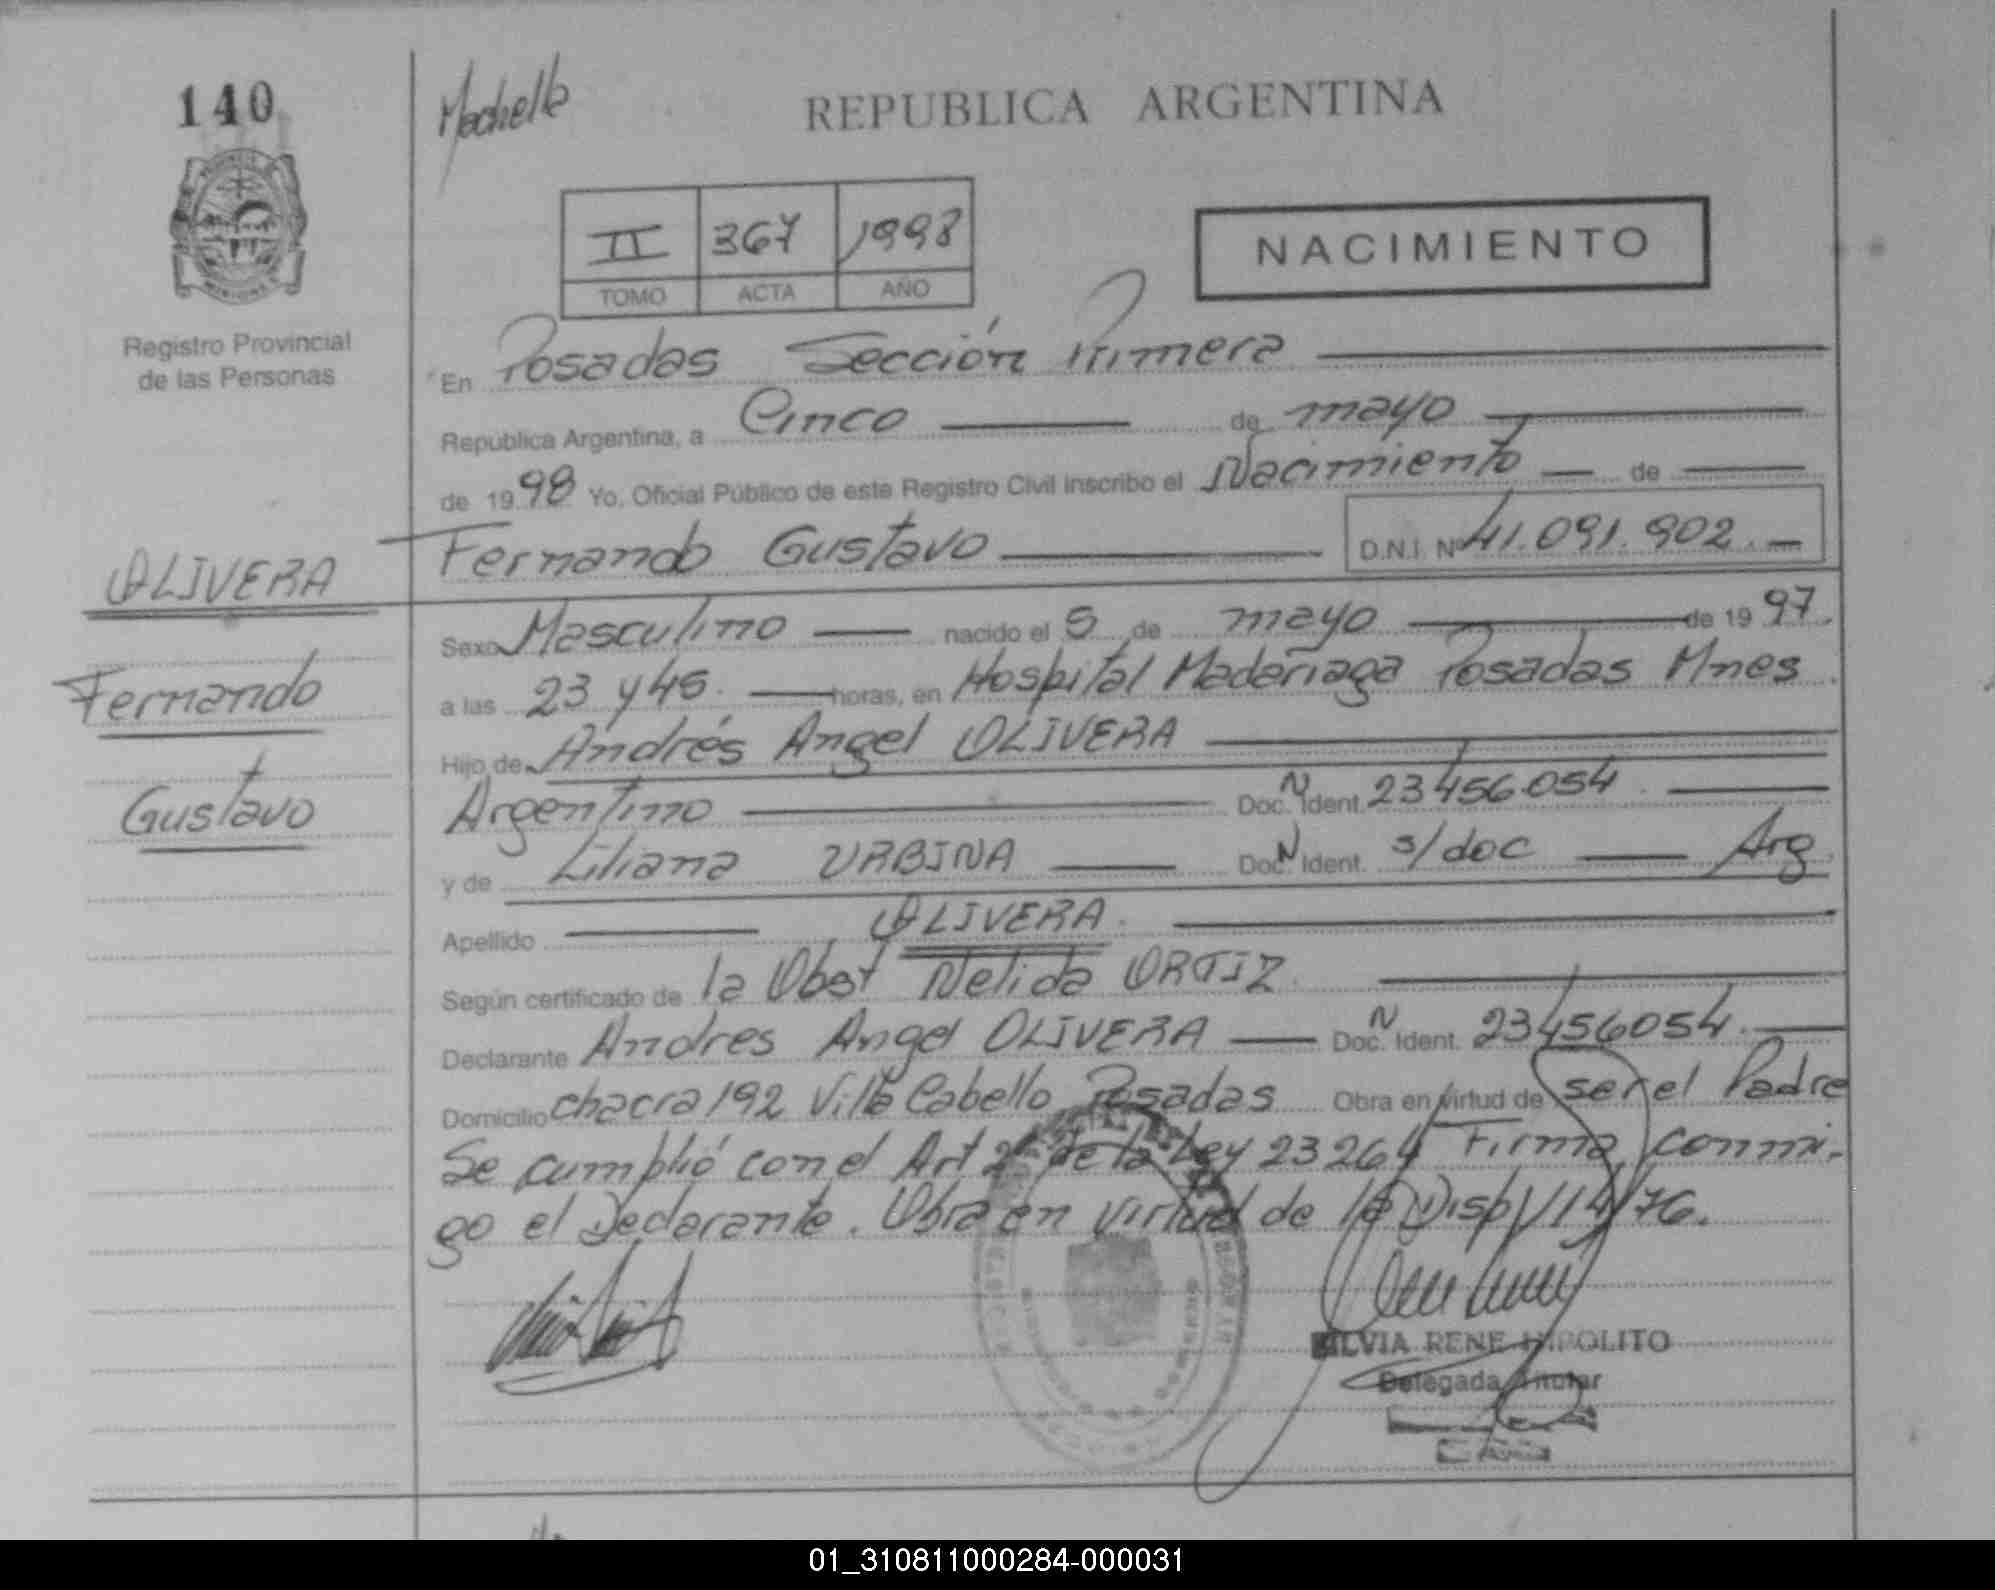 140
Mochello
REPUBLICA ARGENTINA
II 367 1998
TOMO ACTA AÑO
NACIMIENTO
Registro Provincial
de las Personas
En Posadas Sección Primera
Republica Argentina, a Cinco de mayo
de 19 98 Yo, Oficial Público de este Registro Civil inscribo el Nacimiento de
Fernando Gustavo D.N.I. Nº 41.091.902.
OLIVERA
Fernando
Gustavo
Sexo Masculino nacido el 5 de mayo de 19 97.
a las 23 y 45. horas, en Hospital Madariaga Posadas Mnes
Hijo de Andrés Angel OLIVERA
Argentino Doc. N Ident. 23456054
y de Liliana URBINA Doc. N Ident. s/doc Arg
Apellido OLIVERA.
Según certificado de la Obst Nelida ORTIZ
Declarante Andres Angel OLIVERA Doc. N Ident. 23456054.
Domicilio chacra 192 Villa Cabello Posadas Obra en virtud de ser el Padre
Se cumplió con el Art 2º de la Ley 23264 Firma conmi-
go el Declarante. Obra en virtud de la Disp 14/76.
SILVIA RENE HIPOLITO
Delegada Titular
01_310811000284-000031